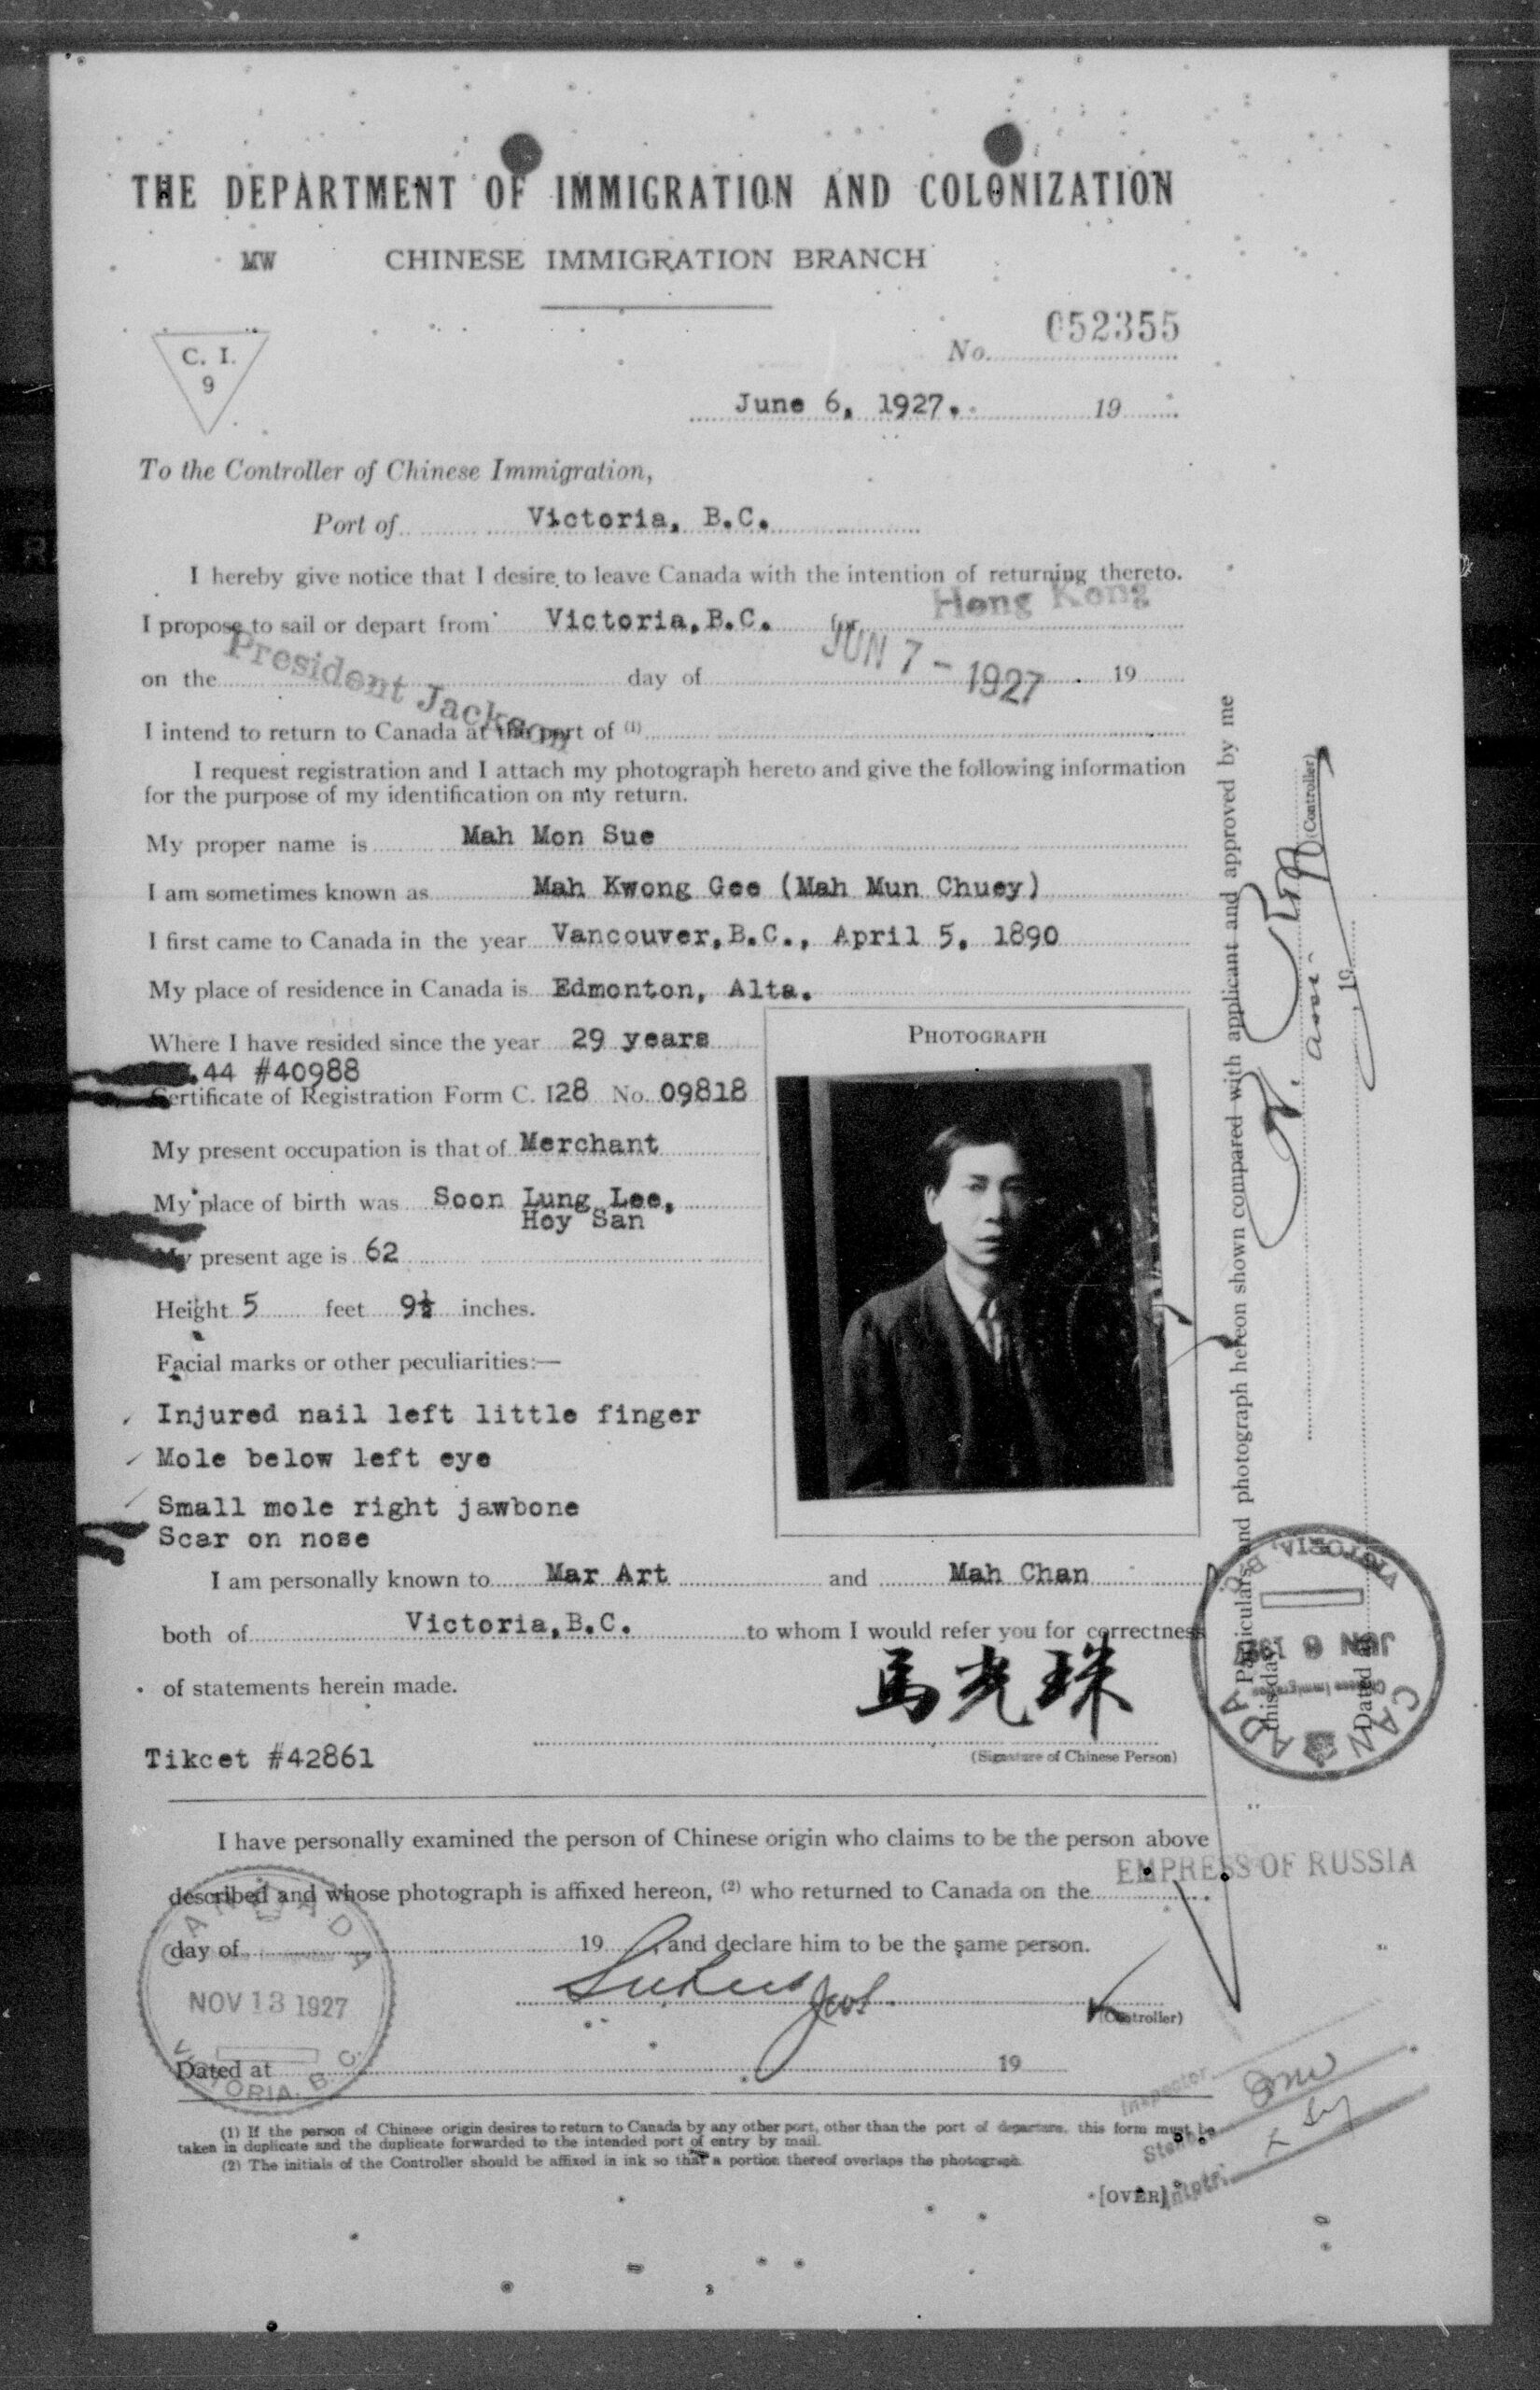 THE DEPARTMENT OF IMMIGRATION AND COLONIZATION
MW CHINESE IMMIGRATION BRANCH
C. I.
9
No. 052355
June 6, 1927. 19
To the Controller of Chinese Immigration,
Port of Victoria, B.C.
I hereby give notice that I desire to leave Canada with the intention of returning thereto.
I propose to sail or depart from Victoria, B.C. for Hong Kong
on the President Jackson day of JUN 7 - 1927 19
I intend to return to Canada at the port of (1)
I request registration and I attach my photograph hereto and give the following information
for the purpose of my identification on my return.
My proper name is Mah Mon Sue
I am sometimes known as Mah Kwong Gee (Mah Mun Chuey)
I first came to Canada in the year Vancouver, B.C., April 5, 1890
My place of residence in Canada is Edmonton, Alta.
Where I have resided since the year 29 years
44 #40988
Certificate of Registration Form C. I28 No. 09818
My present occupation is that of Merchant
My place of birth was Soon Lung Lee,
Hoy San
My present age is 62
Height 5 feet 9½ inches.
Facial marks or other peculiarities:—
Injured nail left little finger
Mole below left eye
Small mole right jawbone
Scar on nose
PHOTOGRAPH
I am personally known to Mar Art and Mah Chan
both of Victoria, B.C. to whom I would refer you for correctness
of statements herein made.
馬光珠
Tikcet #42861
(Signature of Chinese Person)
Particulars and photograph hereon shown compared with applicant and approved by me
this day
(Controller)
Dated at , 19
VICTORIA, B.C.
JUN 6 1927
Chinese Immigration
CANADA
I have personally examined the person of Chinese origin who claims to be the person above
described and whose photograph is affixed hereon, (2) who returned to Canada on the EMPRESS OF RUSSIA
day of 19 , and declare him to be the same person.
CANADA
NOV 13 1927
VICTORIA, B.C.
(Controller)
Dated at 19
Inspector
Steno
Intptr.
(1) If the person of Chinese origin desires to return to Canada by any other port, other than the port of departure, this form must be
taken in duplicate and the duplicate forwarded to the intended port of entry by mail.
(2) The initials of the Controller should be affixed in ink so that a portion thereof overlaps the photograph.
[OVER]